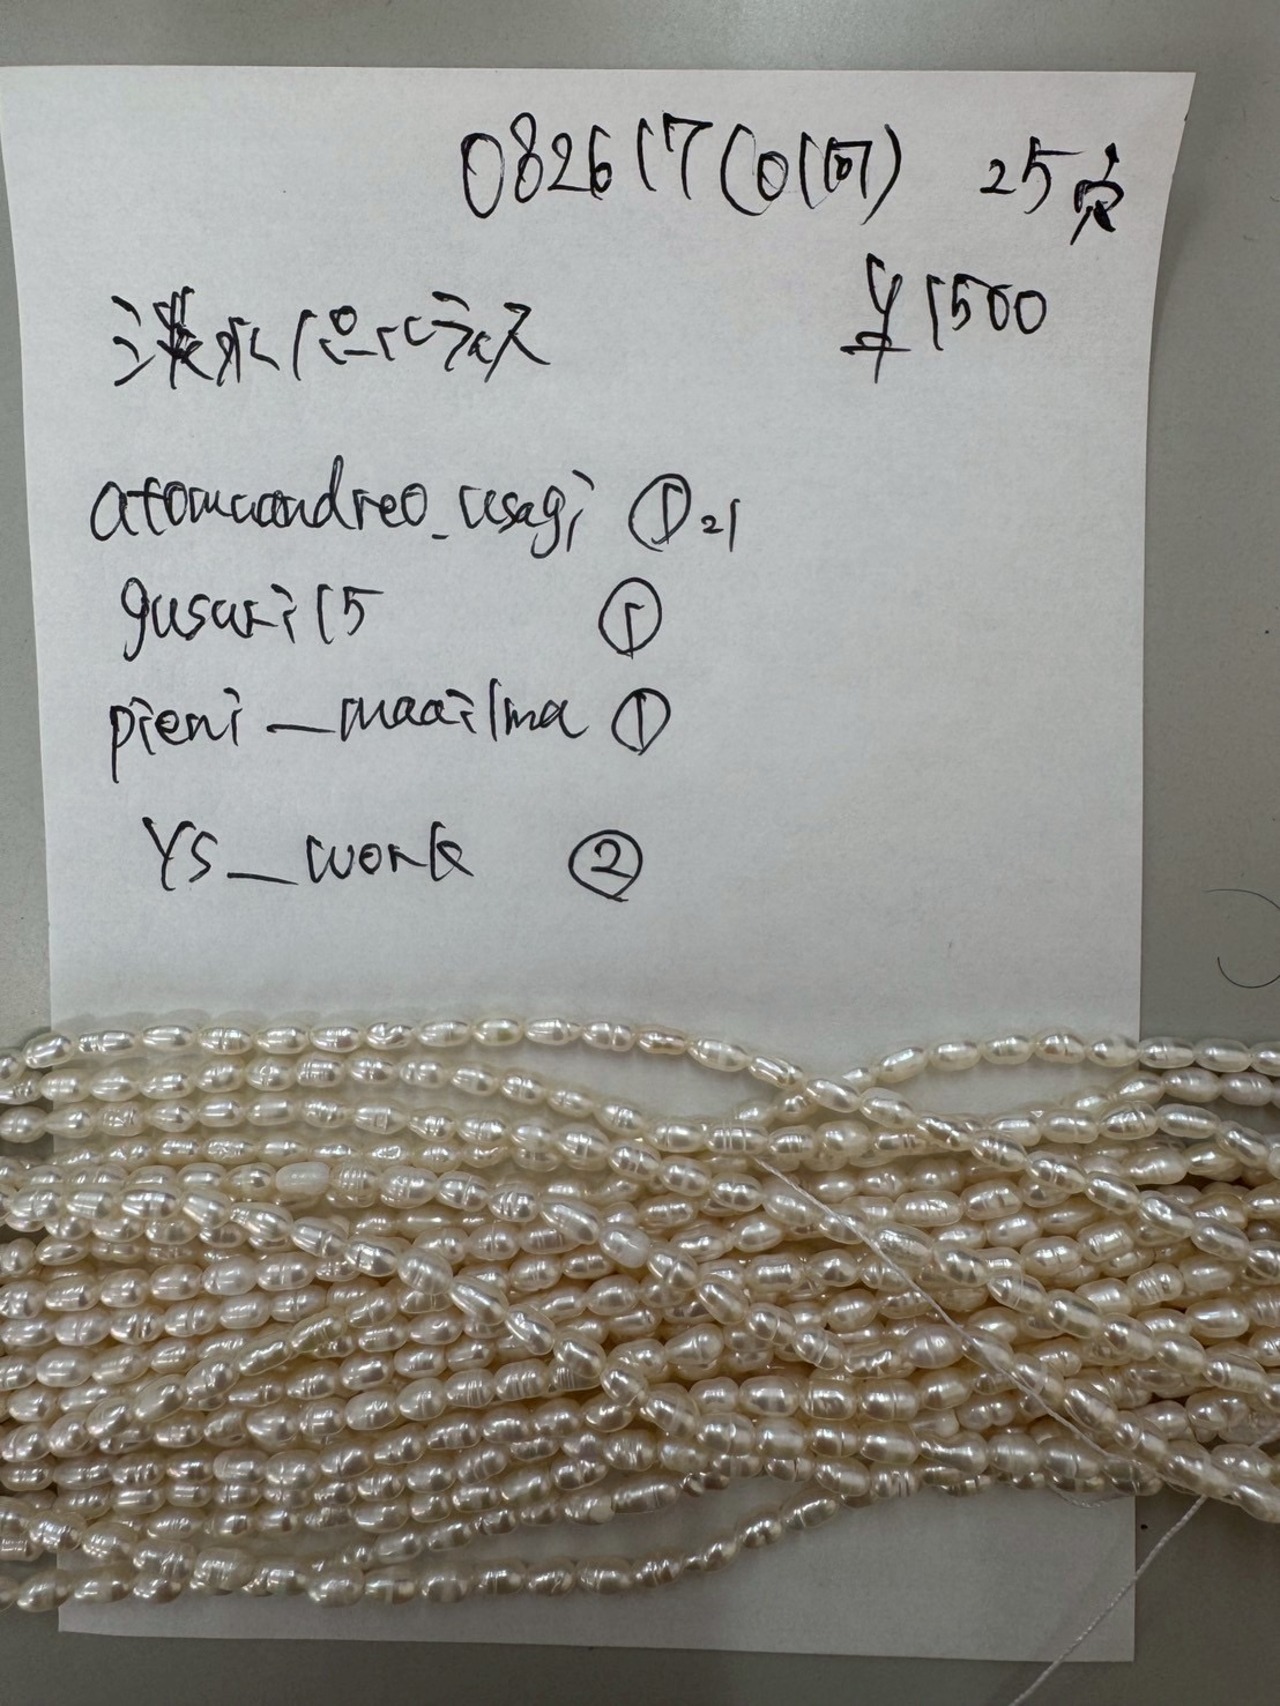 082617 (010円) 25点
¥1500
淡水パールライス
atomcandreo_usagi ① 21
gusuri15 ①
pieni_maailma ①
YS_work ②